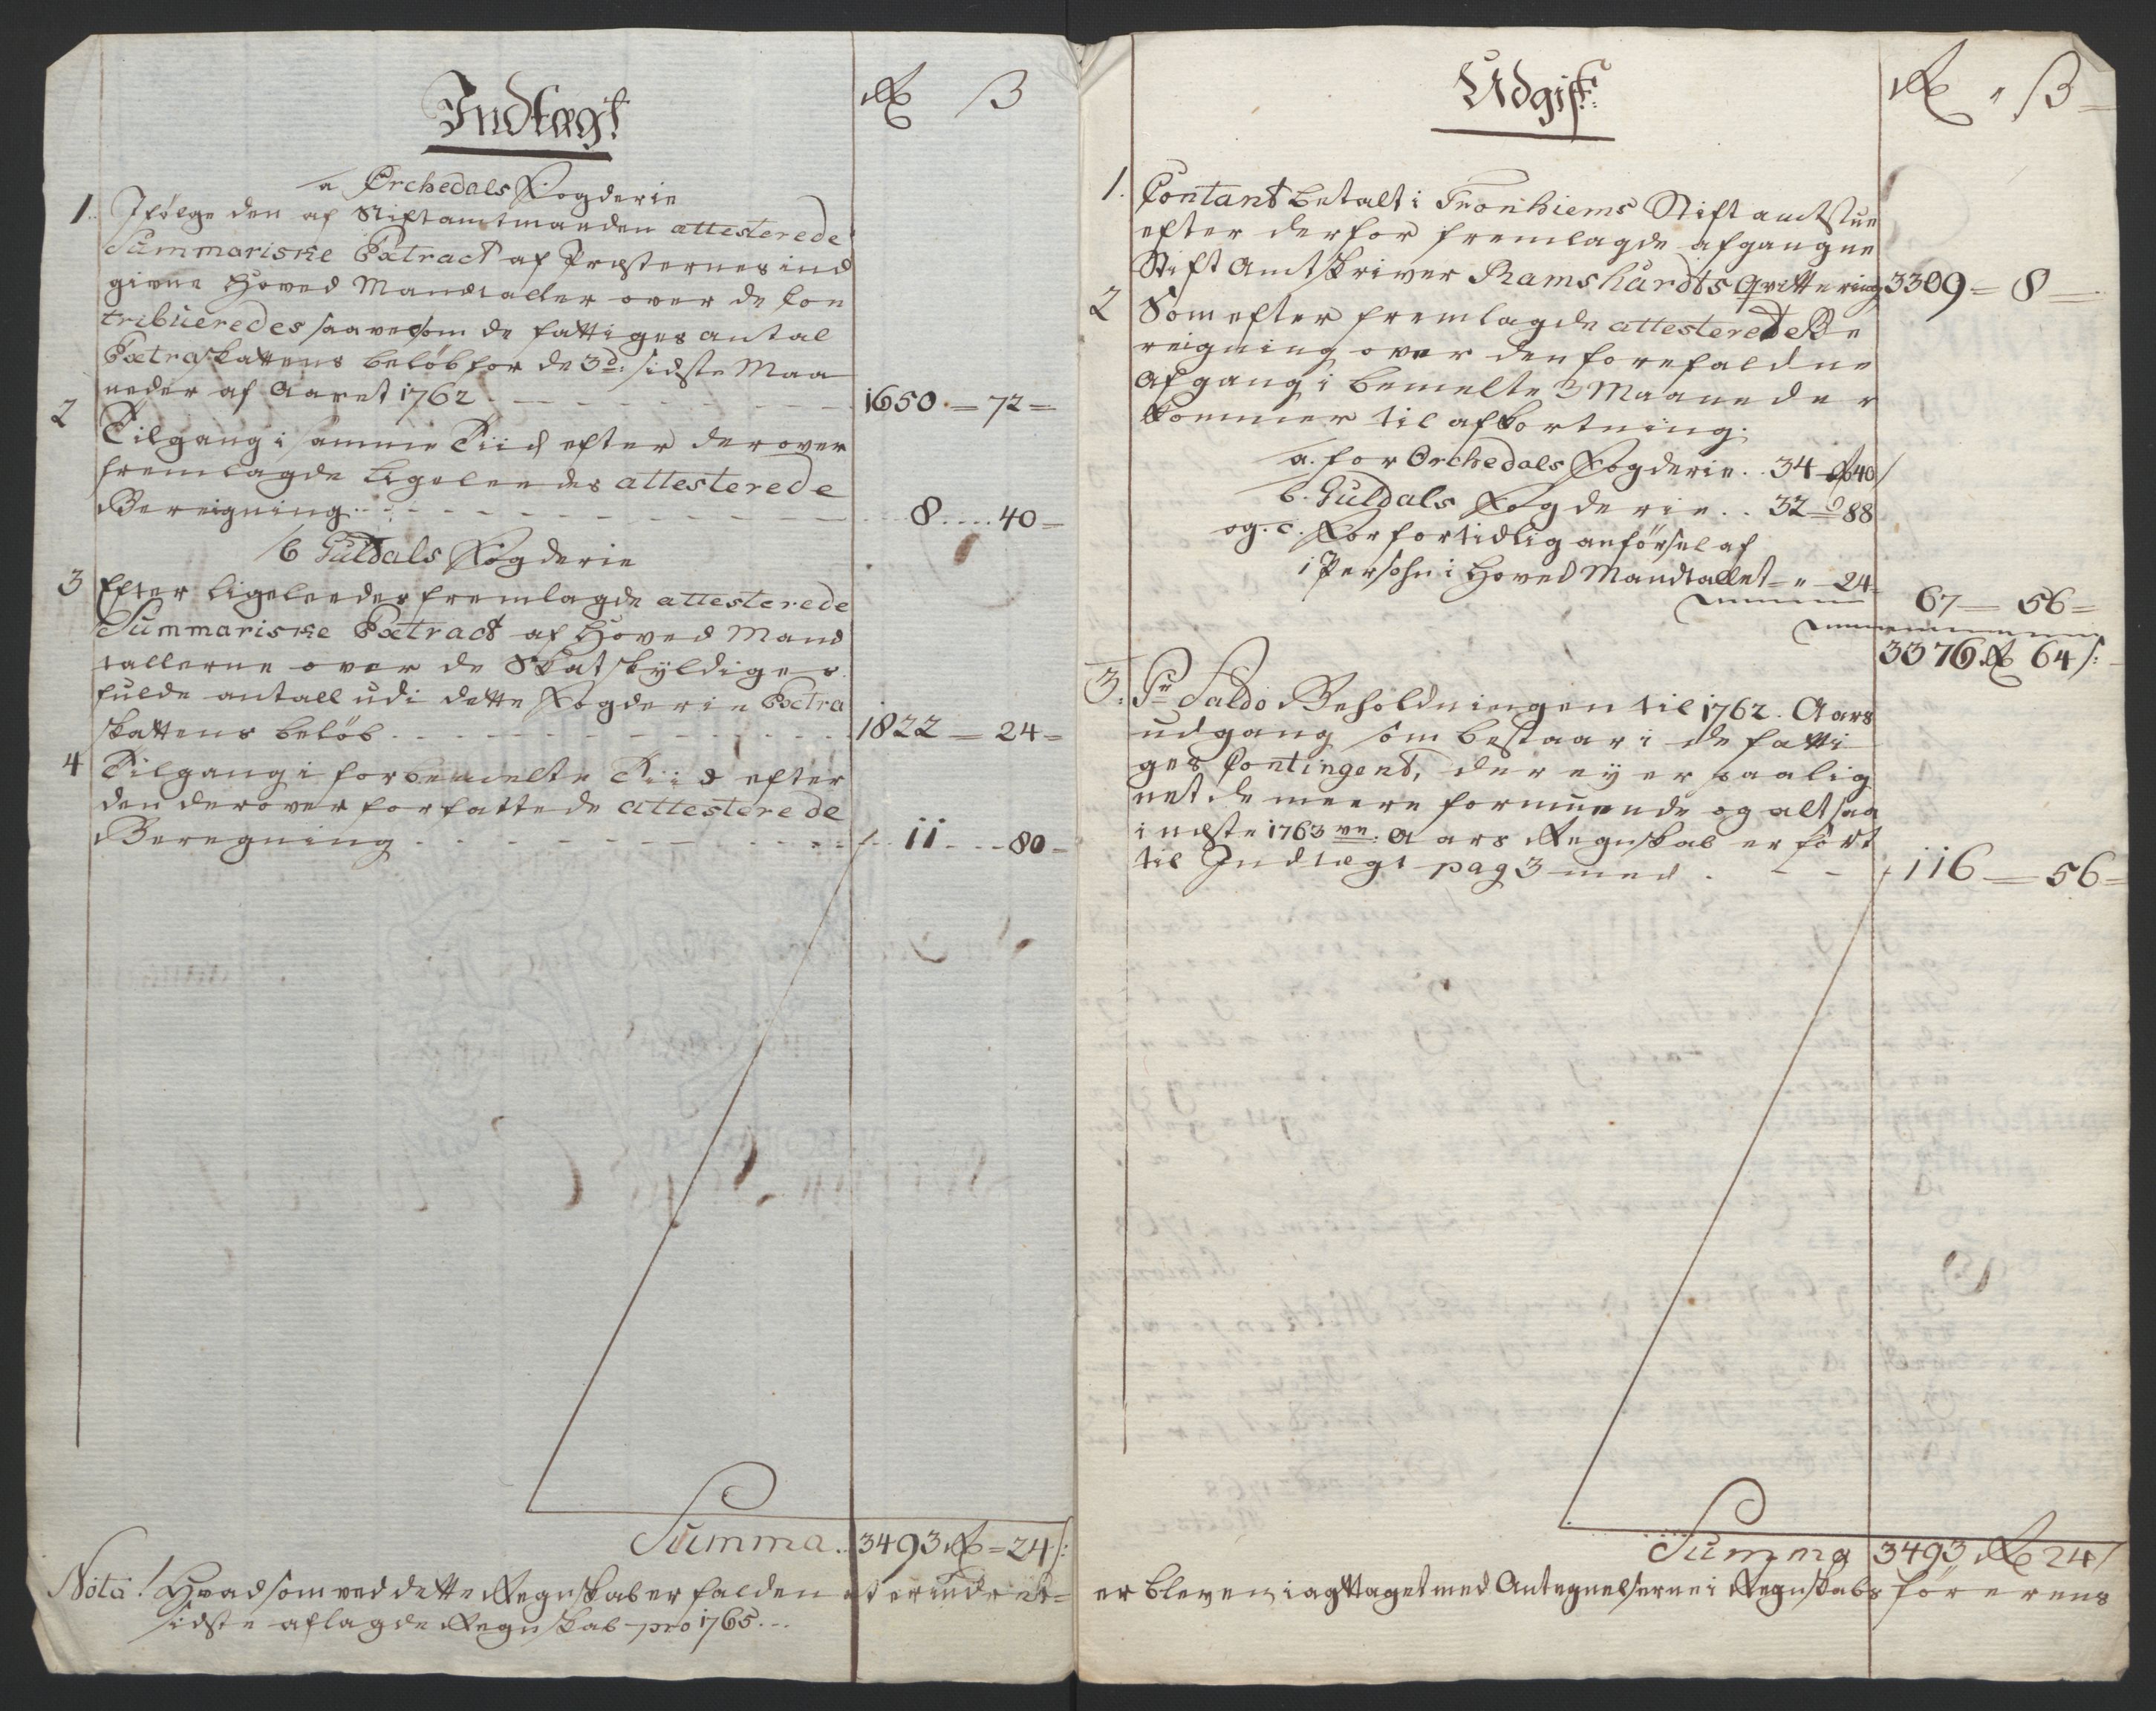 Indtægt
Rdr ß
a Orchedals Fogderie
1. Ifølge den af Stiftamtmanden attesterede
Summariske Extract af Præsternes ind
givne Hoved Mandtaller over de Con
tribueredes saavelsom de fattiges antal
Extraskattens beløb for de 3de: sidste Maa
neder af Aaret 1762 - - - 1650 = 72 =
2 Tilgang i samme Tiid efter derover
fremlagde ligeleedes attesterede
Bereigning - - - 8 .... 40 =
b Guldals Fogderie
3 Efter ligeleedes fremlagde attesterede
Summariske Extract af Hoved Mand
tallerne over de Skatskyldiges
fulde antall udi dette Fogderie Extra
skattens beløb - - - 1822 = 24 =
4 Tilgang i forbemelte Tiid efter
den derover forfattede attesterede
Beregning - - - 11 - - - 80 =
Summa .. 3493 Rdr = 24 ß:
Nota! Hvad som ved dette Regnskab er falden at erindre
sidste aflagde Regnskab pro 1765. ..
Udgift:
Rdr " ß
1. Contant betalt i Tronhiems Stiftamtstue
efter derfor fremlagde afgangne
Stift Amtskriver Ramshardts Qvittering 3309 = 8 =
2 Som efter fremlagde attesterede Be
reigning over den forefaldne
Afgang i bemelte 3 Maaneder
kommer til afkortning.
a. for Orchedals Fogderie . . 34 Rdr 40 ß
b. Guldals Fogderie . . 32 = 88
og. c. For fortidlig anførsel af
1 Persohn i Hoved Mandtallet - " - 24
67 = 56 =
3376 Rdr 64 ß:
3. Pr Saldo Beholdningen til 1762. Aars
udgang som bestaar i de fatti
ges Contingent, der ey er paalig
net de meere formuende og altsaa
i næste 1763 ve: Aars Regnskab er ført
til Indtægt pag 3 med . - - 116 = 56 =
Summa 3493 Rdr 24 ß
er bleven iagttaget med Antegnelserne i Regnskabsførerens